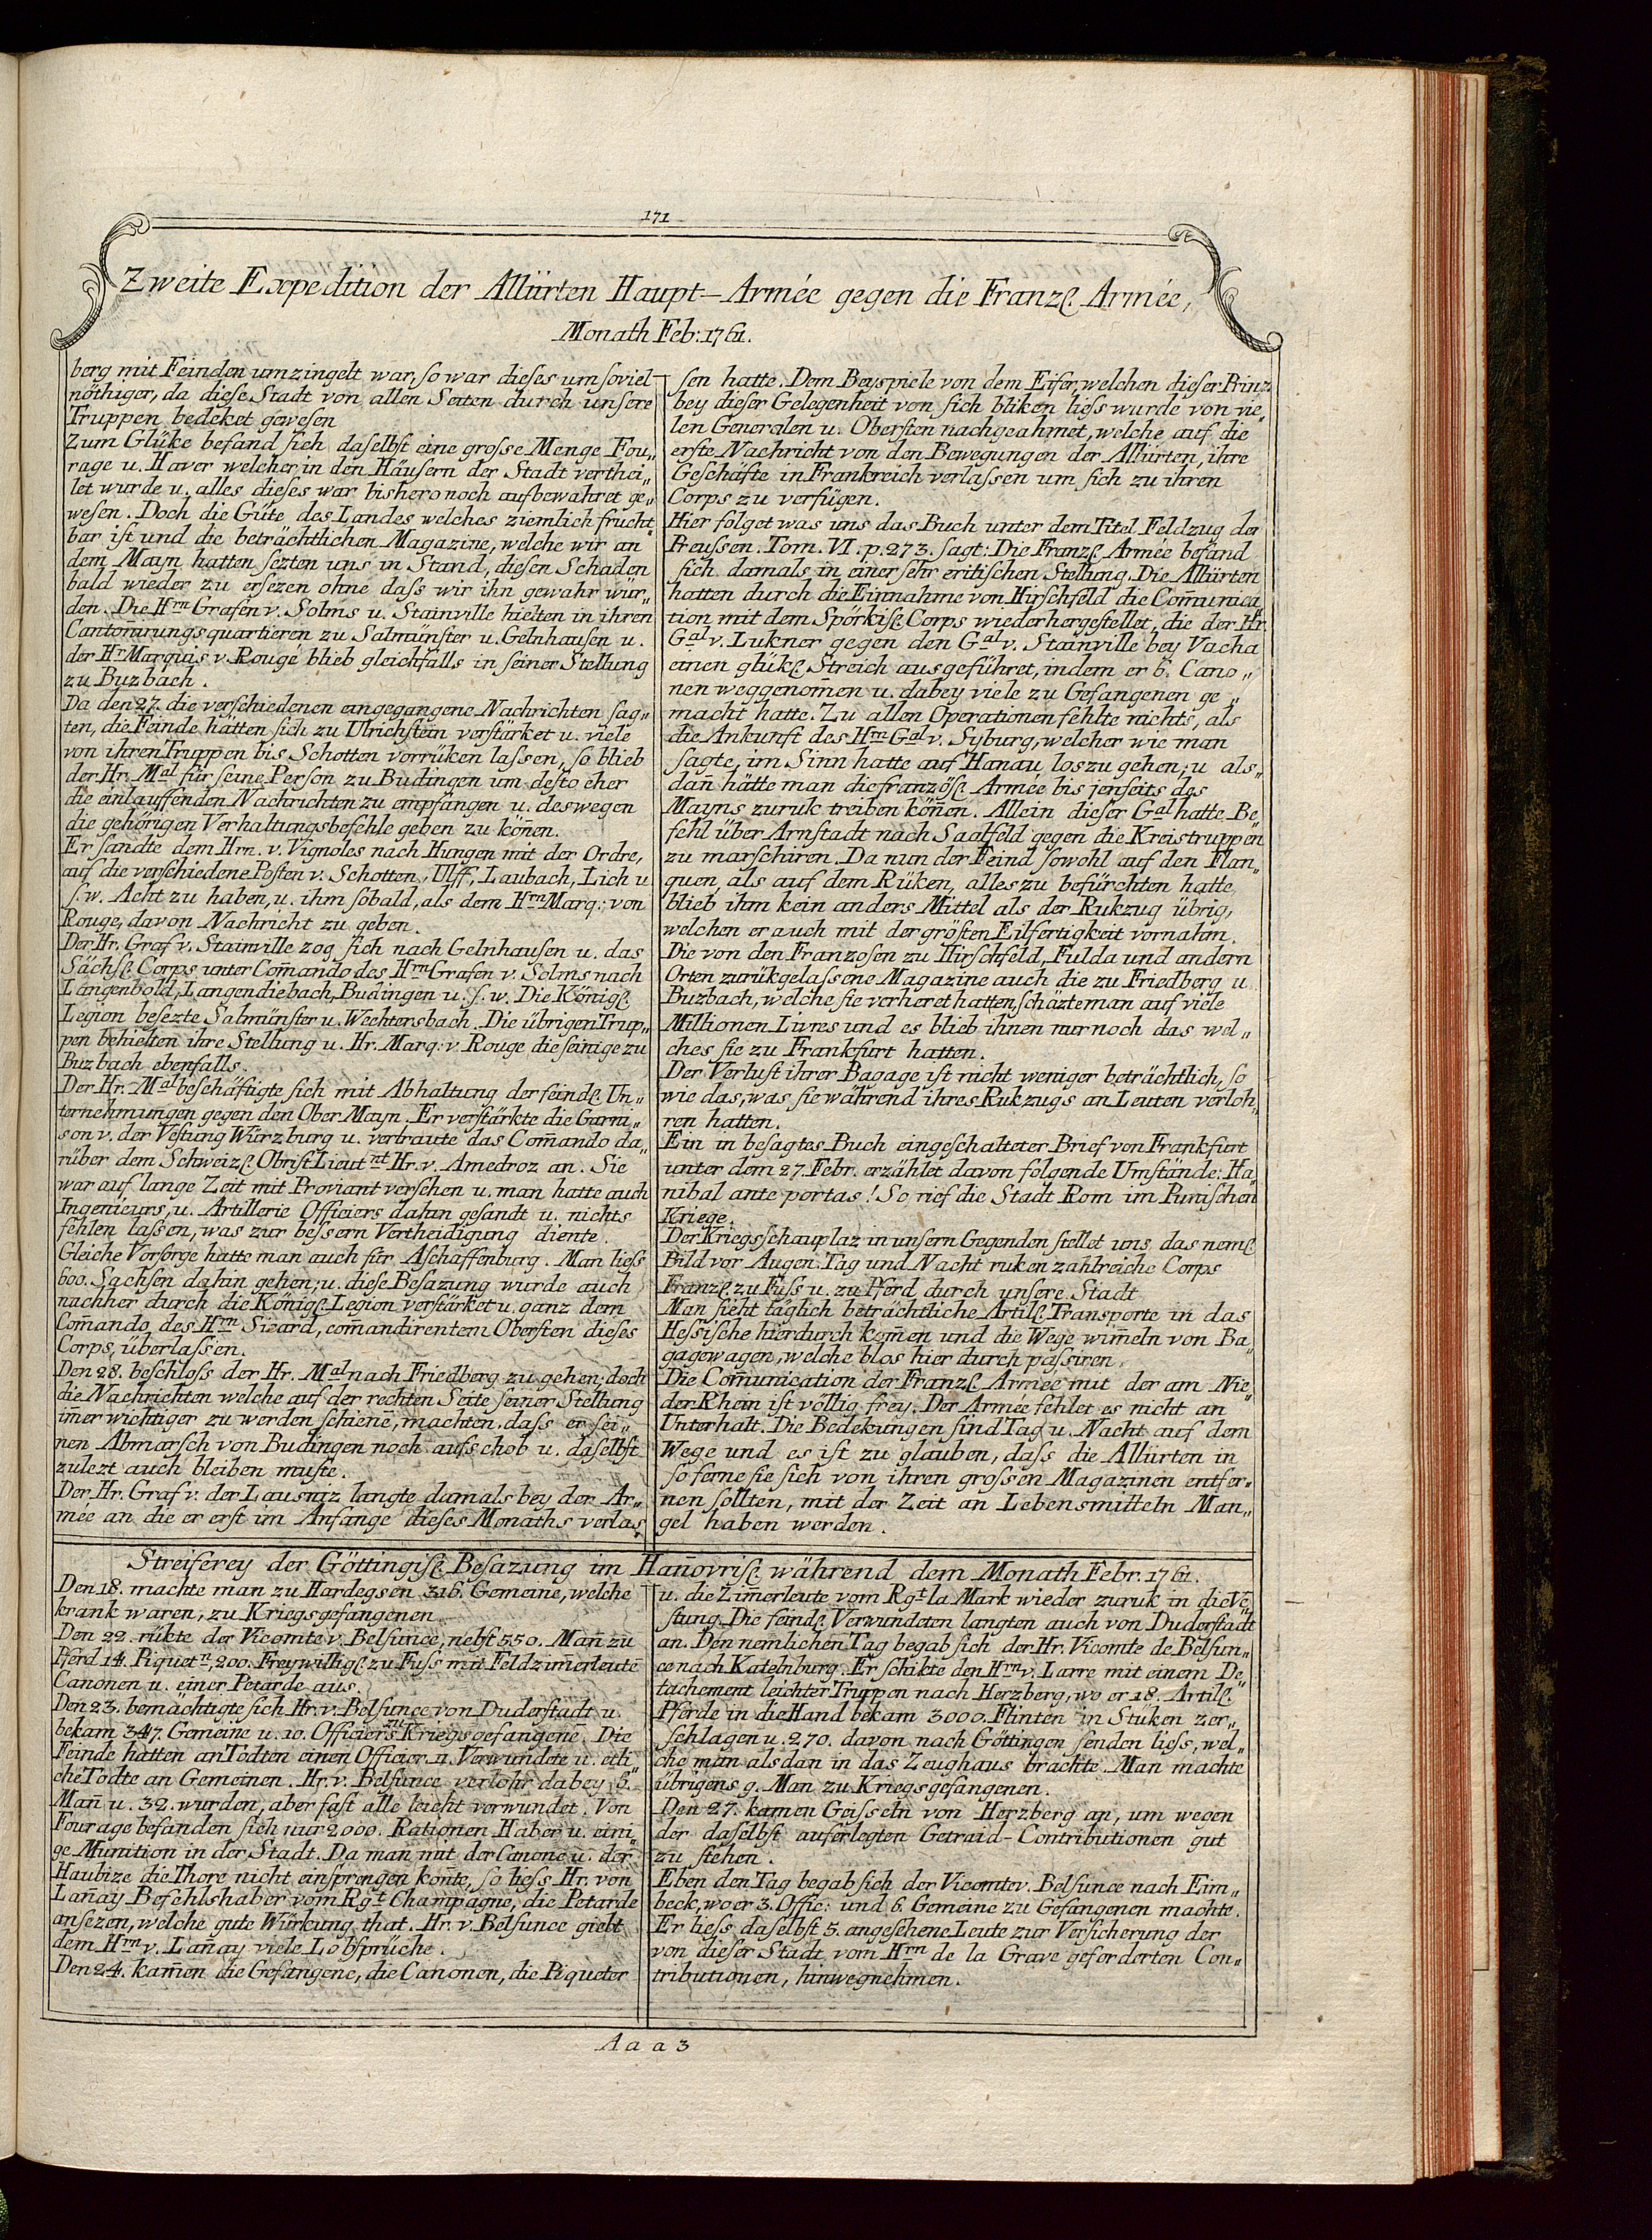 171
Zweite Expedition der Alliirten Haupt-Armée gegen die Franzſ. Armée,
Monath Feb: 1761.
berg mit Feinden umzingelt war, ſo war dieſes um ſoviel
nöthiger, da dieſe Stadt von allen Seiten durch unſere
Truppen bedeket geweſen
Zum Glüke befand ſich daſelbſt eine groſse Menge Fou„
rage u. Haver welcher in den Häuſern der Stadt verthei„
let wurde u. alles dieſes war bishero noch aufbewahret ge„
weſen. Doch die Güte des Landes welches ziemlich frucht„
bar iſt und die beträchtlichen Magazine, welche wir an
dem Mayn hatten ſezten uns in Stand, dieſen Schaden
bald wieder zu erſezen ohne daſs wir ihn gewahr wür„
den. Die Hrn Grafen v. Solms u. Stainville hielten in ihren
Cantoñirungs quartieren zu Salmünſter u. Gelnhauſen u.
der Hr Marquis v. Rougé blieb gleichfalls in ſeiner Stellung
zu Buzbach.
Da den 27. die verſchiedenen eingegangene Nachrichten ſag„
ten, die Feinde hätten ſich zu Ulrichſtein verſtärket u. viele
von ihren Truppen bis Schotten vorrüken laſsen, ſo blieb
der Hr. Mal für ſeine Perſon zu Budingen um deſto eher
die einlauffenden Nachrichten zu empfangen u. deswegen
die gehörigen Verhaltungsbefehle geben zu köñen.
Er ſandte dem Hrn. v. Vignoles nach Hungen mit der Ordre,
auf die verſchiedene Poſten v. Schotten, Ulff, Laubach, Lich u
ſ. w. Acht zu haben, u. ihm ſobald, als dem Hrn Marq: von
Rouge, davon Nachricht zu geben.
Der Hr. Graf v. Stainville zog ſich nach Gelnhauſen u. das
Sächſ. Corps unter Com̃ando des Hrn Grafen v. Solms nach
Langenbold, Langendiebach, Budingen u. ſ. w. Die Königl.
Legion beſezte Salmünſter u. Wechtersbach. Die übrigen Trup„
pen behielten ihre Stellung u. Hr. Marq: v. Rouge die ſeinige zu
Buzbach ebenfalls.
Der Hr. Mal beſchäftigte ſich mit Abhaltung der feindl. Un„
ternehmungen gegen den Ober Mayn. Er verſtärkte die Garni„
son v. der Veſtung Würzburg u. vertraute das Com̃ando da„
rüber dem Schweizſ. Obriſt Lieutnt Hr. v. Amedroz an. Sie
war auf lange Zeit mit Proviant verſehen u. man hatte auch
Ingenieurs, u. Artillerie Officiers dahin geſandt u. nichts
fehlen laſsen, was zur beſsern Vertheidigung diente.
Gleiche Vorſorge hatte man auch für Aſchaffenburg. Man lieſs
600. Sachſen dahin gehen; u. dieſe Beſazung wurde auch
nachher durch die Königl. Legion verſtärket u. ganz dem
Com̃ando des Hrn Sicard, com̃andirentem Oberſten dieſes
Corps, überlaſsen.
Den 28. beſchloſs der Hr. Mal nach Friedberg zu gehen; doch
die Nachrichten welche auf der rechten Seite ſeiner Stellung
im̃er wichtiger zu werden ſchiene, machten daſs er ſei„
nen Abmarſch von Budingen noch aufſchob u. daſelbſt
zulezt auch bleiben muſte.
Der Hr. Graf v. der Lausniz langte damals bey der Ar„
mée an die er erſt im Anfange dieſes Monaths verlaſ„
ſen hatte. Dem Beyspiele von dem Eifer, welchen dieſer Prinz
bey dieſer Gelegenheit von ſich bliken lieſs wurde von vie„
len Generalen u. Oberſten nachgeahmet, welche auf die
erſte Nachricht von den Bewegungen der Alliirten, ihre
Geſchäfte in Frankreich verlaſsen um ſich zu ihren
Corps zu verfügen.
Hier folget was uns das Buch unter dem Titel Feldzug der
Preuſsen. Tom. VI. p. 273. ſagt: Die Franzſ. Armée befand
ſich damals in einer ſehr critiſchen Stellung. Die Alliirten
hatten durch die Einnahme von Hirſchfeld die Com̃unica„
tion mit dem Spörkiſ. Corps wiederhergeſtellet, die der Hr.
Gal v. Lukner gegen den Gal v. Stainville bey Vacha
einen glükl. Streich ausgeführet, indem er 6. Cano„
nen weggenom̃en u. dabey viele zu Gefangenen ge„
macht hatte. Zu allen Operationen fehlte nichts, als
die Ankunft des Hrn Gal v. Syburg, welcher wie man
ſagte, im Sinn hatte auf Hanau loszugehen; u als„
dañ hätte man die franzöſ. Armée bis jenſeits des
Mayns zuruk treiben köñen. Allein dieſer Gal hatte Be„
fehl über Arnſtadt nach Saalfeld gegen die Kreistruppen
zu marſchiren. Da nun der Feind ſowohl auf den Flan„
quen, als auf dem Rüken, alles zu befürchten hatte
blieb ihm kein anders Mittel als der Rukzug übrig,
welchen er auch mit der gröſten Eilfertigkeit vornahm.
Die von den Franzoſen zu Hirſchfeld, Fulda und andern
Orten zurükgelaſsene Magazine auch die zu Friedberg u.
Buzbach, welche ſie verheret hatten, ſchäzte man auf viele
Millionen Livres und es blieb ihnen nur noch das wel„
ches ſie zu Frankfurt hatten.
Der Verluſt ihrer Bagage iſt nicht weniger beträchtlich, ſo
wie das, was ſie während ihres Rukzugs an Leuten verloh„
ren hatten.
Ein in beſagtes Buch eingeſchalteter Brief von Frankfurt
unter dem 27. Febr. erzählet davon folgende Umſtände: Ha„
nibal ante portas! So rief die Stadt Rom im Puniſchen
Kriege.
Der Kriegsſchauplaz in unſern Gegenden ſtellet uns das neml.
Bild vor Augen. Tag und Nacht ruken zahlreiche Corps
Franzſ. zu Fuſs u. zu Pferd durch unſere Stadt
Man ſieht täglich beträchtliche Artill. Transporte in das
Heſsiſche hierdurch kom̃en und die Wege wim̃eln von Ba„
gagewagen, welche blos hier durch paſsiren.
Die Com̃unication der Franzſ. Armee mit der am Nie„
der Rhein iſt völlig frey. Der Armée fehlet es nicht an
Unterhalt. Die Bedekungen ſind Tag u. Nacht auf dem
Wege und es iſt zu glauben, daſs die Alliirten in
ſo ferne ſie ſich von ihren groſsen Magazinen entfer„
nen ſollten, mit der Zeit an Lebensmitteln Man„
gel haben werden.
Streiferey der Göttingiſ. Beſazung im Hañovriſ. während dem Monath Febr. 1761.
Den 18. machte man zu Hardegsen 316. Gemeine, welche
krank waren, zu Kriegsgefangenen.
Den 22. rükte der Vicomte v. Belſunce, nebſt 550. Mañ zu
Pferd 14. Piquetn, 200. Freywilligl. zu Fuſs mit Feldzim̃erleuten
Canonen u. einer Petarde aus.
Den 23. bemächtigte ſich Hr. v. Belſunce von Duderſtadt u.
bekam 347. Gemeine u. 10. Officiers zu Kriegsgefangene. Die
Feinde hatten an Todten einen Officier 11. Verwundete u. etli„
che Todte an Gemeinen. Hr. v. Belſunce verlohr dabey 6.
Mañ u. 32. wurden, aber faſt alle leicht verwundet. Von
Fourage befanden ſich nur 2000. Rationen Haber u. eini„
ge Munition in der Stadt. Da man mit der Canone u. der
Haubize die Thore nicht einſprengen koñte, ſo lieſs Hr. von
Lañay Befehlshaber vom Rgt Champagne, die Petarde
anſezen, welche gute Würkung that. Hr. v. Belſunce giebt
dem Hrn v. Lañay viele Lobſprüche.
Den 24. kam̃en die Gefangene, die Canonen, die Piqueter
u. die Zim̃erleute vom Rgt la Mark wieder zuruk in die Ve„
ſtung. Die feindl. Verwundeten langten auch von Duderſtadt
an. Den nemlichen Tag begab ſich der Hr. Vicomte de Belſun„
ce nach Katelnburg. Er ſchikte den Hrn v. Larre mit einem De„
tachement leichter Truppen nach Herzberg, wo er 18. Artill.
Pferde in die Hand bekam 3000. Flinten in Stüken zer„
ſchlagen u. 270. davon nach Göttingen ſenden lieſs, wel„
che man alsdan in das Zeughaus brachte. Man machte
übrigens 9. Man zu Kriegsgefangenen.
Den 27. kamen Geiſseln von Herzberg an, um wegen
der daſelbſt auferlegten Getraid-Contributionen gut
zu ſtehen.
Eben den Tag begab ſich der Vicomte v. Belſunce nach Eim„
beck, wo er 3. Offic: und 6. Gemeine zu Gefangenen machte.
Er lieſs daſelbſt 5. angeſehene Leute zur Verſicherung der
von dieſer Stadt vom Hrn de la Grave geforderten Con„
tributionen, hinwegnehmen.
Aaa 3